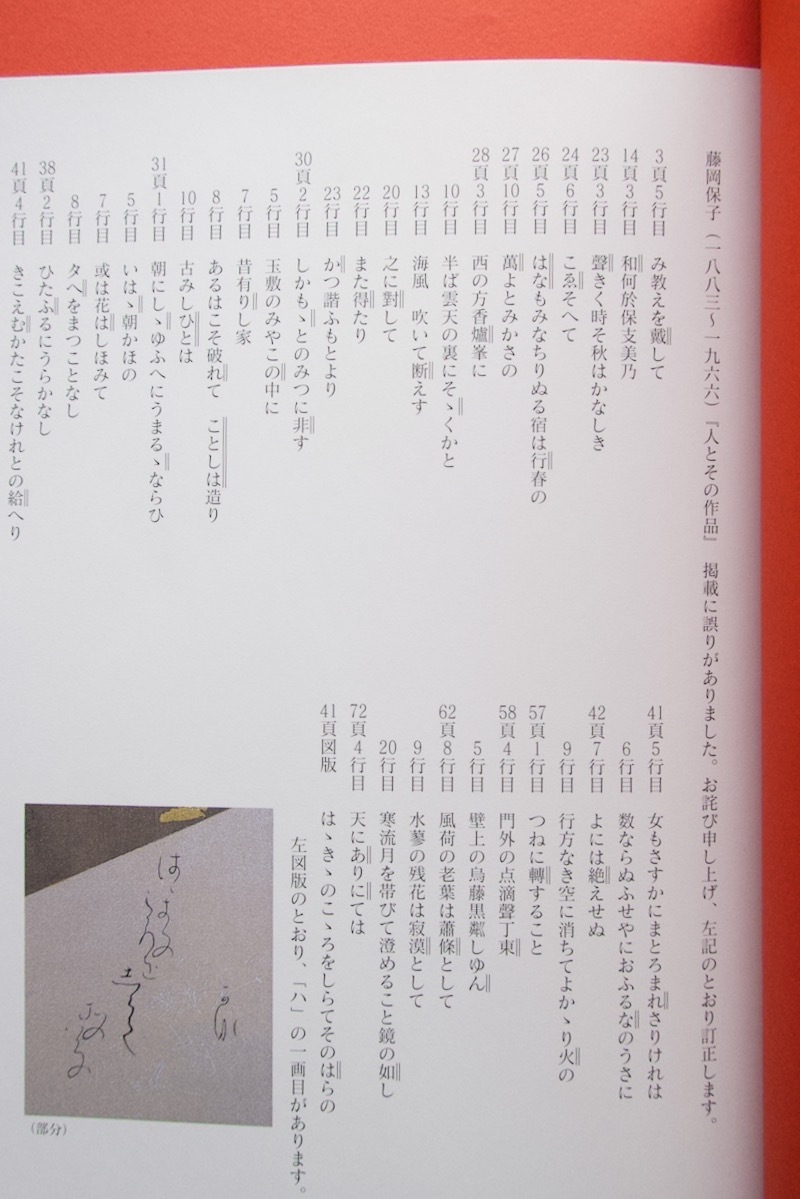 藤岡保子（一八八三～一九六六）『人とその作品』　掲載に誤りがありました。お詫び申し上げ、左記のとおり訂正します。
3頁5行目　み教えを戴して
14頁3行目　和何於保支美乃
23頁3行目　聲きく時そ秋はかなしき
24頁6行目　こゑそへて
26頁5行目　はなもみなちりぬる宿は行春の
27頁10行目　萬よとみかさの
28頁3行目　西の方香爐峯に
10行目　半ば雲天の裏にそゝくかと
13行目　海風　吹いて断えす
20行目　之に對して
22行目　また得たり
23行目　かつ諧ふもとより
30頁2行目　しかもゝとのみつに非す
5行目　玉敷のみやこの中に
7行目　昔有りし家
8行目　あるはこそ破れて　ことしは造り
10行目　古みしひとは
31頁1行目　朝にしゝゆふへにうまるゝならひ
5行目　いはゝ朝かほの
7行目　或は花はしほみて
8行目　夕へをまつことなし
38頁2行目　ひたふるにうらかなし
41頁4行目　きこえむかたこそなけれとの給へり
41頁5行目　女もさすかにまとろまれさりけれは
6行目　数ならぬふせやにおふるなのうさに
42頁7行目　よには絶えせぬ
9行目　行方なき空に消ちてよかゝり火の
57頁1行目　つねに轉すること
58頁4行目　門外の点滴聲丁東
5行目　壁上の烏藤黒粼しゆん
62頁8行目　風荷の老葉は蕭條として
9行目　水蓼の残花は寂漠として
20行目　寒流月を帯びて澄めること鏡の如し
72頁4行目　天にありにては
41頁図版　はゝきゝのこゝろをしらてそのはらの
左図版のとおり、「ハ」の一画目があります。
（部分）